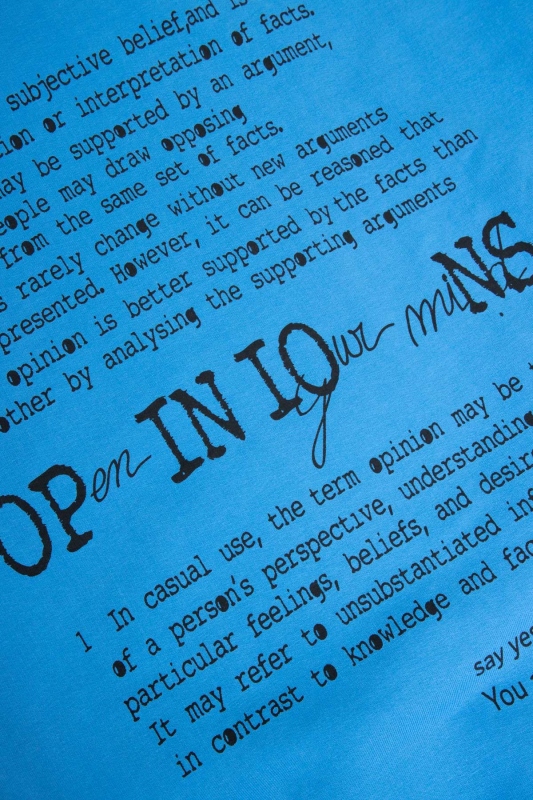 subjective belief,and is
tion or interpretation of facts.
may be supported by an argument,
people may draw opposing
from the same set of facts.
s rarely change without new arguments
presented. However, it can be reasoned that
opinion is better supported by the facts than
other by analysing the supporting arguments
OPen IN IOyour miNdS
1 In casual use, the term opinion may be
of a person's perspective, understanding
particular feelings, beliefs, and desire
It may refer to unsubstantiated inf
in contrast to knowledge and fac
say yes
You